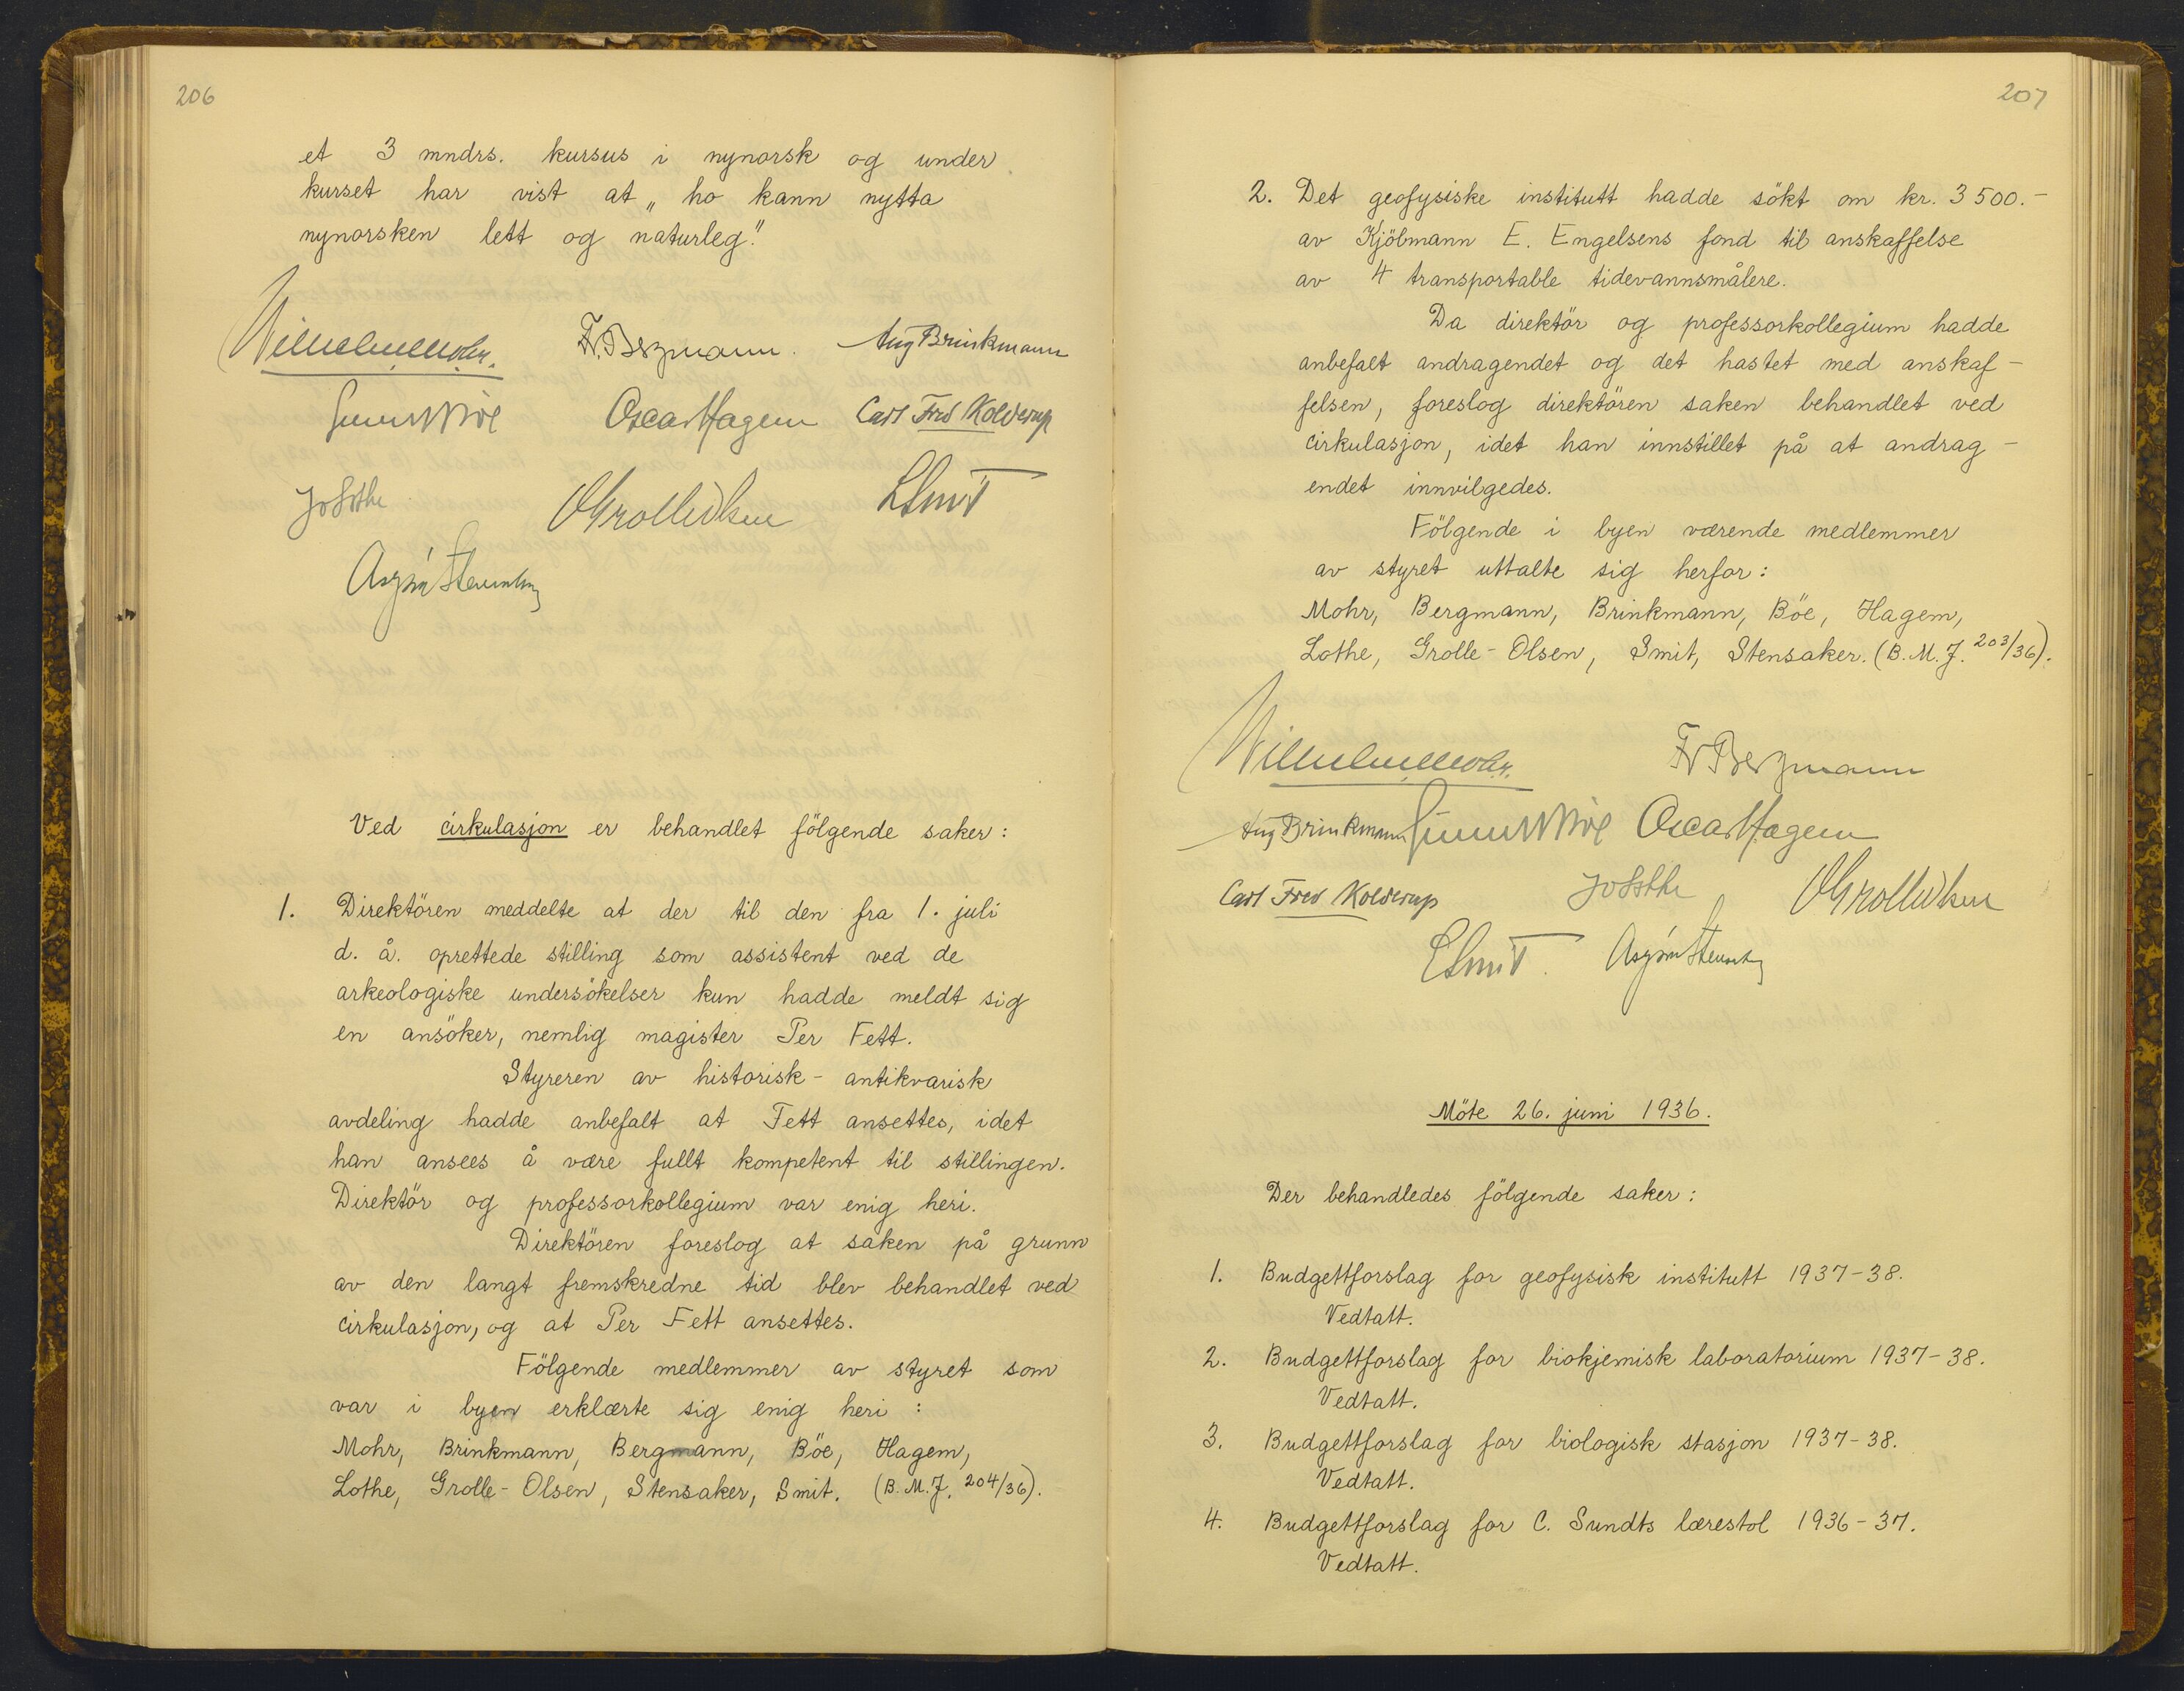 206
et 3 mndrs. kursus i nynorsk og under
kurset har vist at „ho kann nytta
nynorsken lett og naturleg."
Wilhelm Mohr.
Fr. Bergmann. Aug Brinkmann
Oscar Hagem Carl Fred Kolderup
Jo Lothe
O Grolle Olsen
E Smit
Asbjörn Stensaker
Ved cirkulasjon er behandlet fölgende saker:
1. Direktören meddelte at der til den fra 1. juli
d. å. oprettede stilling som assistent ved de
arkeologiske undersökelser kun hadde meldt sig
en ansöker, nemlig magister Per Fett.
Styreren av historisk-antikvarisk
avdeling hadde anbefalt at Fett ansettes, idet
han ansees å være fullt kompetent til stillingen.
Direktör og professorkollegium var enig heri.
Direktören foreslog at saken på grunn
av den langt fremskredne tid blev behandlet ved
cirkulasjon, og at Per Fett ansettes.
Fölgende medlemmer av styret som
var i byen erklærte sig enig heri:
Mohr, Brinkmann, Bergmann, Böe, Hagem,
Lothe, Grolle-Olsen, Stensaker, Smit. (B.M.J. 204/36).
207
2. Det geofysiske institutt hadde sökt om kr. 3500.-
av Kjöbmann E. Engelsens fond til anskaffelse
av 4 transportable tidevannsmålere.
Da direktör og professorkollegium hadde
anbefalt andragendet og det hastet med anskaf-
felsen, foreslog direktören saken behandlet ved
cirkulasjon, idet han innstillet på at andrag-
endet innvilgedes.
Fölgende i byen værende medlemmer
av styret uttalte sig herfor:
Mohr, Bergmann, Brinkmann, Böe, Hagem,
Lothe, Grolle-Olsen, Smit, Stensaker. (B.M.J. 203/36).
Wilhelm Mohr.
Fr Bergmann
Aug Brinkmann Oscar Hagem
Carl Fred Kolderup Jo Lothe O Grolle Olsen
E Smit. Asbjörn Stensaker
Möte 26. juni 1936.
Der behandledes fölgende saker:
1. Budgettforslag for geofysisk institutt 1937-38.
Vedtatt.
2. Budgettforslag for biokjemisk laboratorium 1937-38.
Vedtatt.
3. Budgettforslag for biologisk stasjon 1937-38.
Vedtatt.
4. Budgettforslag for C. Sundts lærestol 1936-37.
Vedtatt.